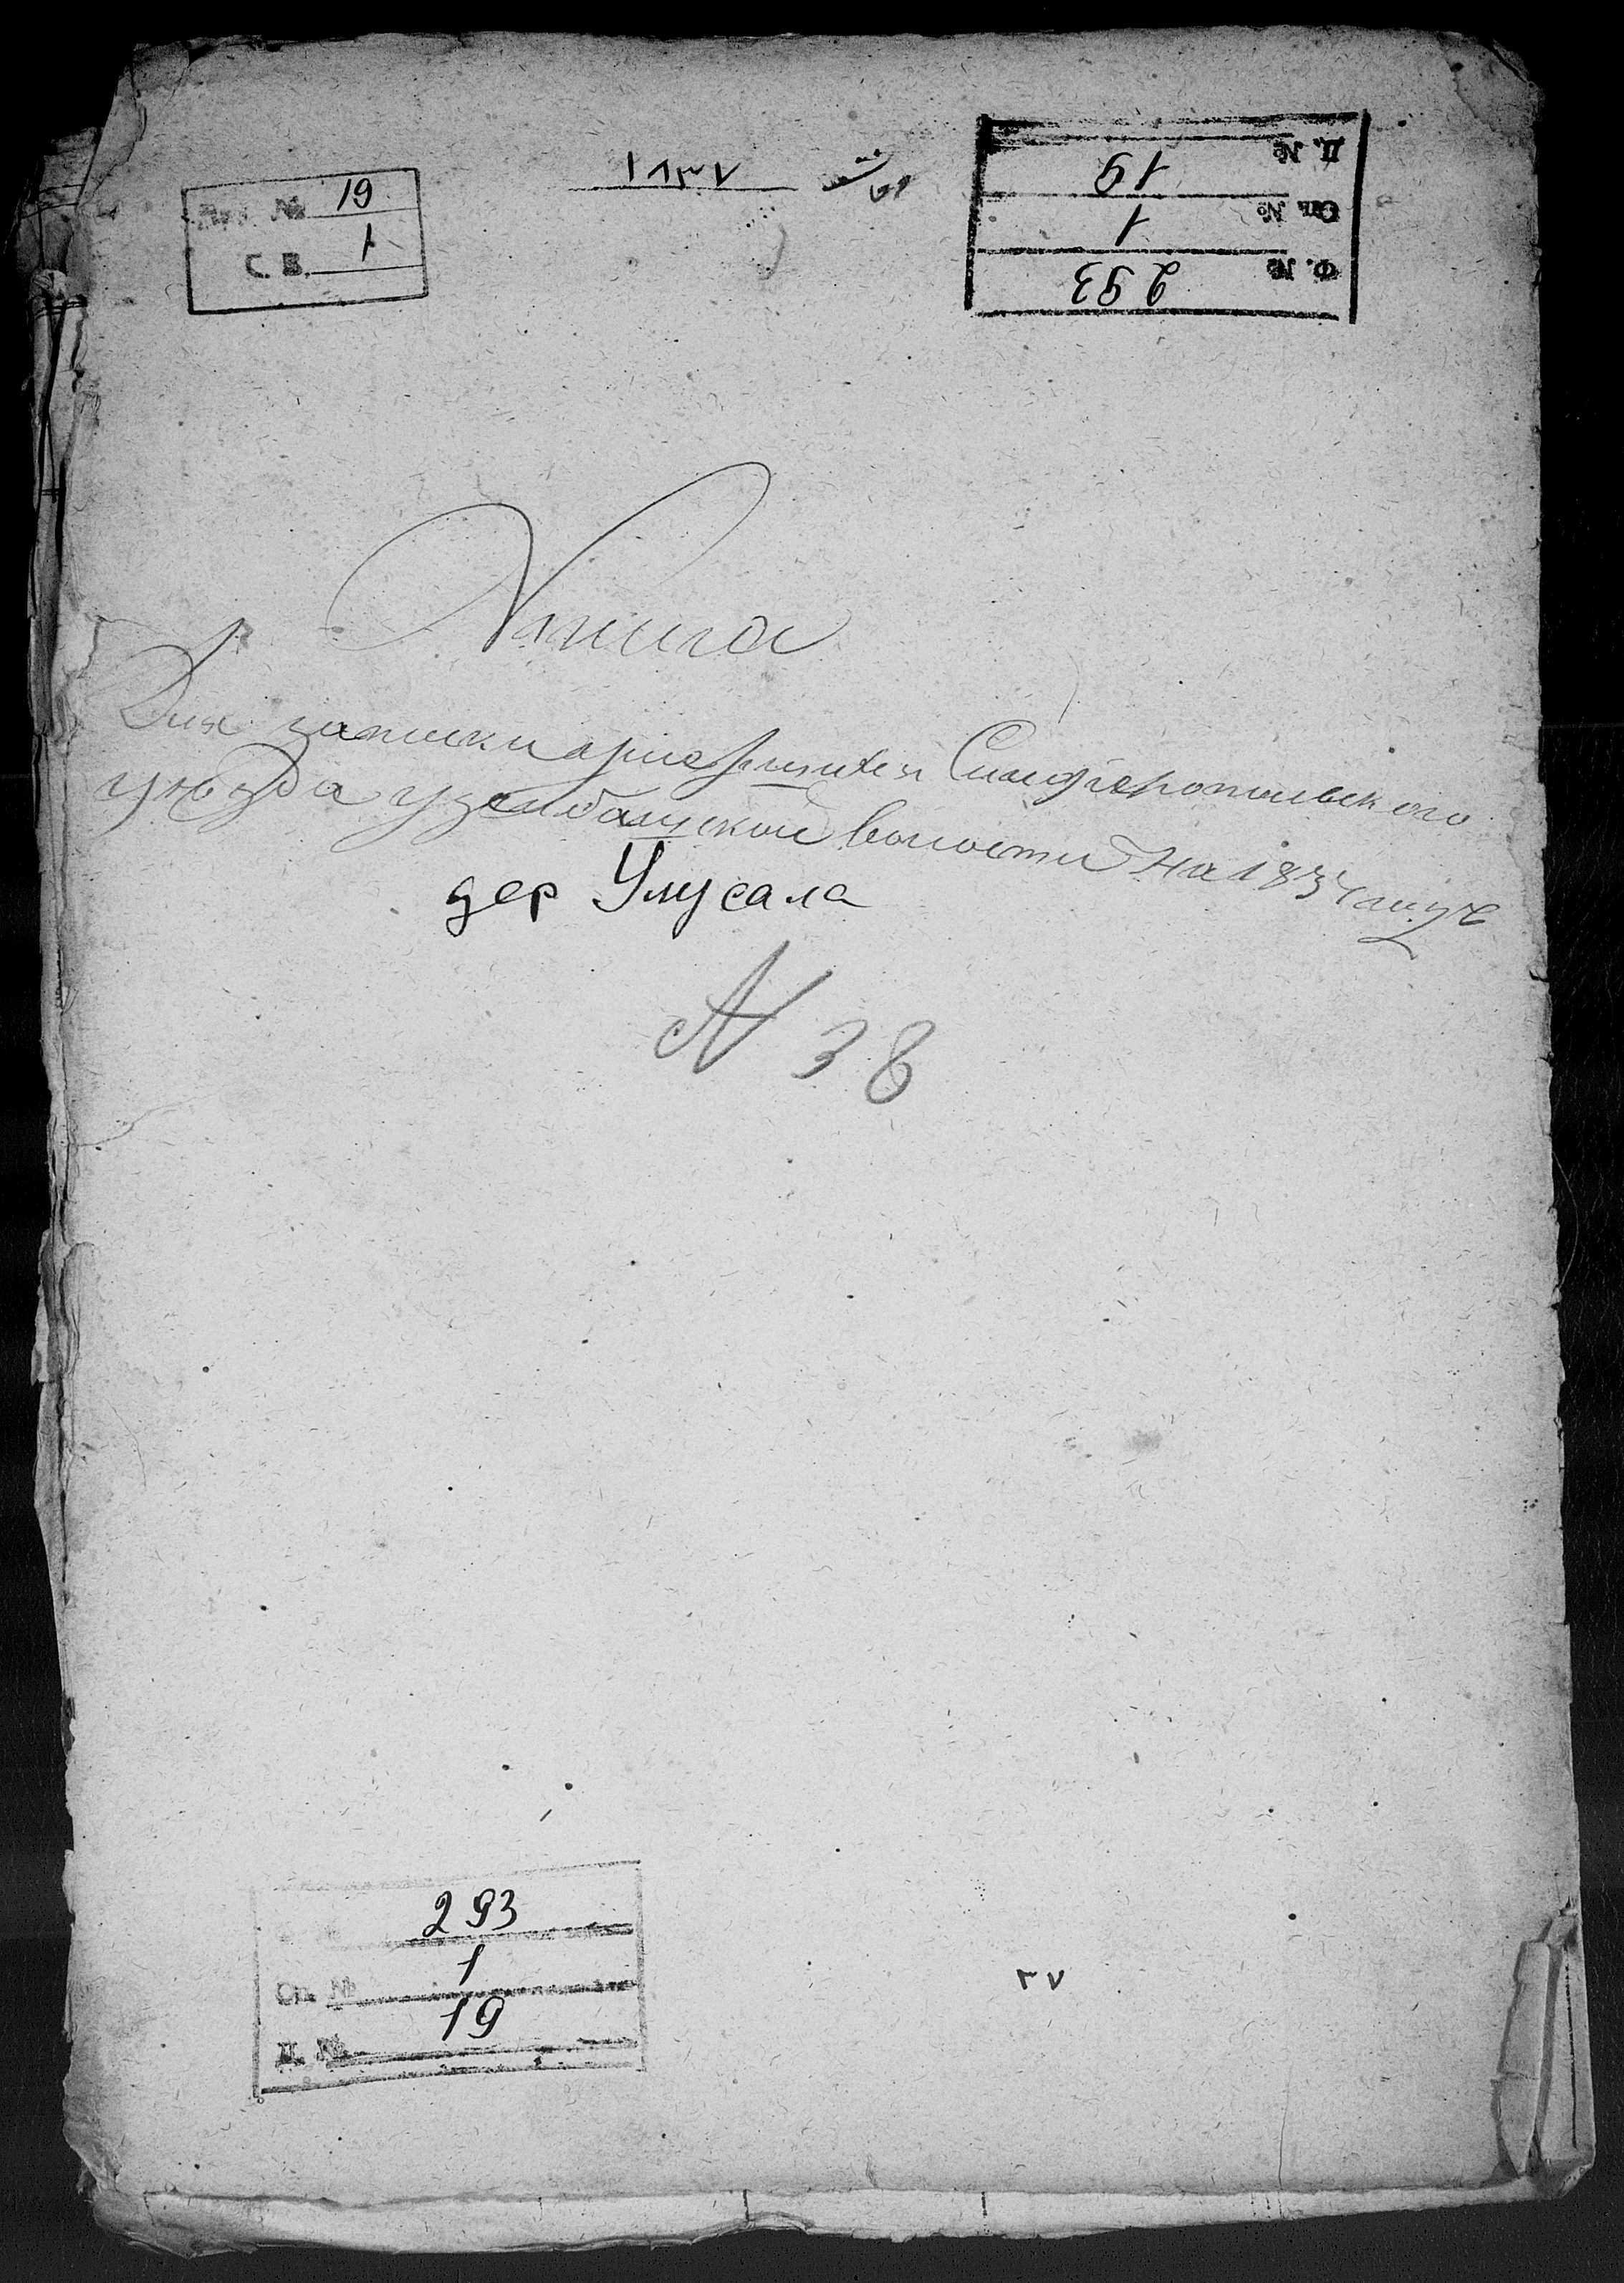 Арх. № 19
С. В. 1
١٨٣٧
Д. № 19
Оп. № 1
Ф. № 293
Книга
Для записки Симферопольского
уезда узенбашской волости на 1837
дер Улусала
N 38
293
Оп. № 1
Д. № 19
٣٧